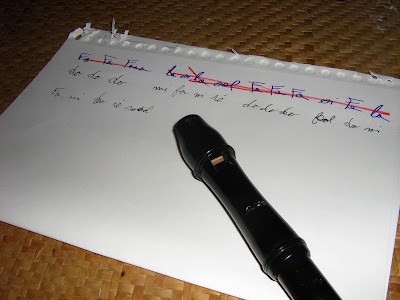 Fa Fa Faaa la la sol Fa Fa Fa mi Fa la
do do do mi fa mi ré do do do sol do mi
Fa mi ré sool